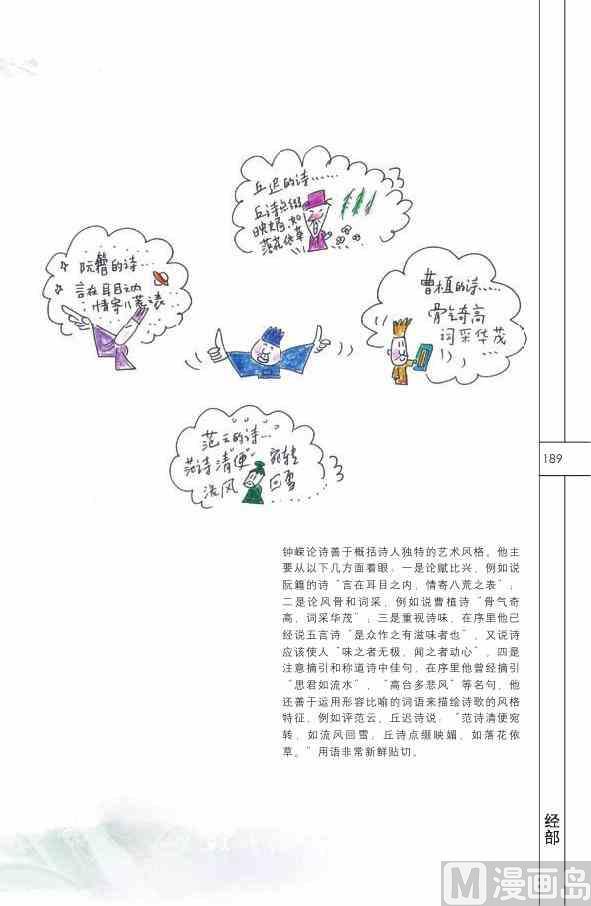 丘迟的诗……
丘诗点缀
映媚，如
落花依草
阮籍的诗…
言在耳目之内
情寄八荒之表…
曹植的诗……
骨气奇高
词采华茂
范云的诗…
范诗清便宛转
流风回雪
189
钟嵘论诗善于概括诗人独特的艺术风格。他主
要从以下几方面着眼：一是论赋比兴，例如说
阮籍的诗“言在耳目之内，情寄八荒之表”；
二是论风骨和词采，例如说曹植诗“骨气奇
高，词采华茂”；三是重视诗味，在序里他已
经说五言诗“是众作之有滋味者也”，又说诗
应该使人“味之者无极，闻之者动心”，四是
注意摘引和称道诗中佳句，在序里他曾经摘引
“思君如流水”，“高台多悲风”等名句，他
还善于运用形容比喻的词语来描绘诗歌的风格
特征，例如评范云、丘迟诗说：“范诗清便宛
转，如流风回雪，丘诗点缀映媚，如落花依
草。”用语非常新鲜贴切。
经部
M漫画岛